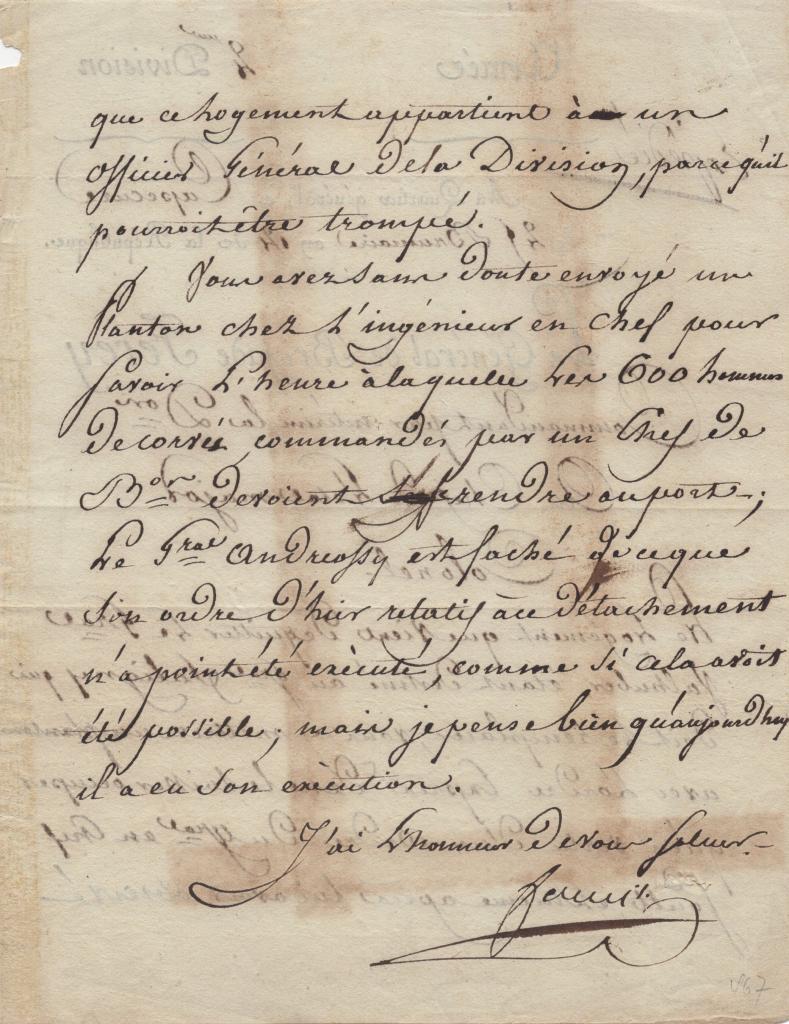 que ce logement appartient à un
officier Général de la Division, parcequ'il
pourroit être trompé.
Vous avez sans doute envoyé un
Planton chez L'ingénieur en chef pour
savoir L'heure à laquelle Les 600 hommes
de corvée commandés par un Chef de
B.on devoient se rendre au port;
Le G.ral Andreossy est faché de ce que
Son ordre d'hier relatif à ce détachement
n'a point été exécuté, comme si cela avoit
été possible; mais je pense bien qu'aujourd'huy
il a eu Son exécution.
J'ai L'honneur de vous saluer
V67